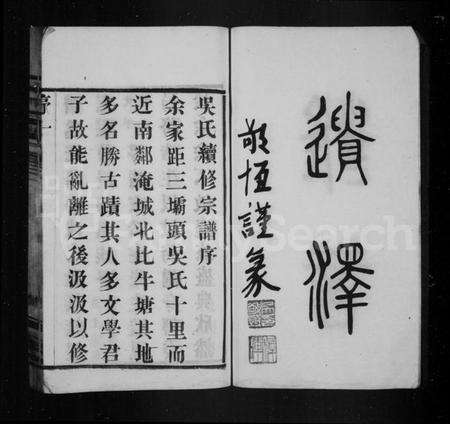 遺澤
敬恆謹篆
吳氏續修宗譜序
余家距三壩頭吳氏十里而
近南鄰淹城北比牛塘其地
多名勝古蹟其人多文學君
子故能亂離之後汲汲以修
序 一